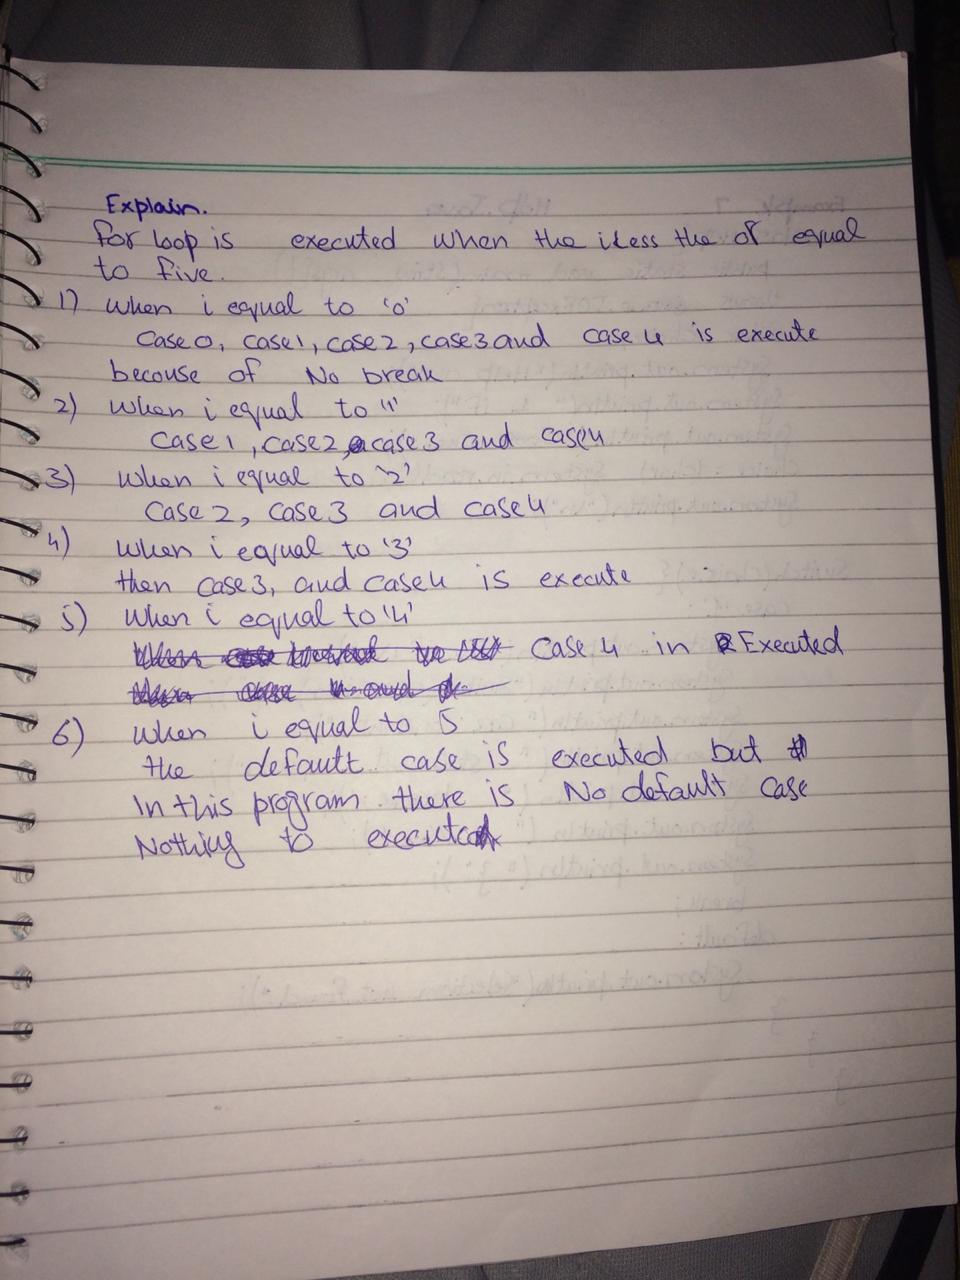 Explain.
For loop is executed when the i less the or equal
to five.
1) when i equal to '0'
case 0, case 1, case 2, case 3 and case 4 is execute
becouse of No break
2) when i equal to '1'
case 1, case 2, case 3 and case 4
3) when i equal to '2'
case 2, case 3 and case 4
4) when i equal to '3'
then case 3, and case 4 is execute
5) when i equal to '4'
case 4 in Executed
6) when i equal to 5
the default case is executed but
In this program there is No default case
Nothing to execute